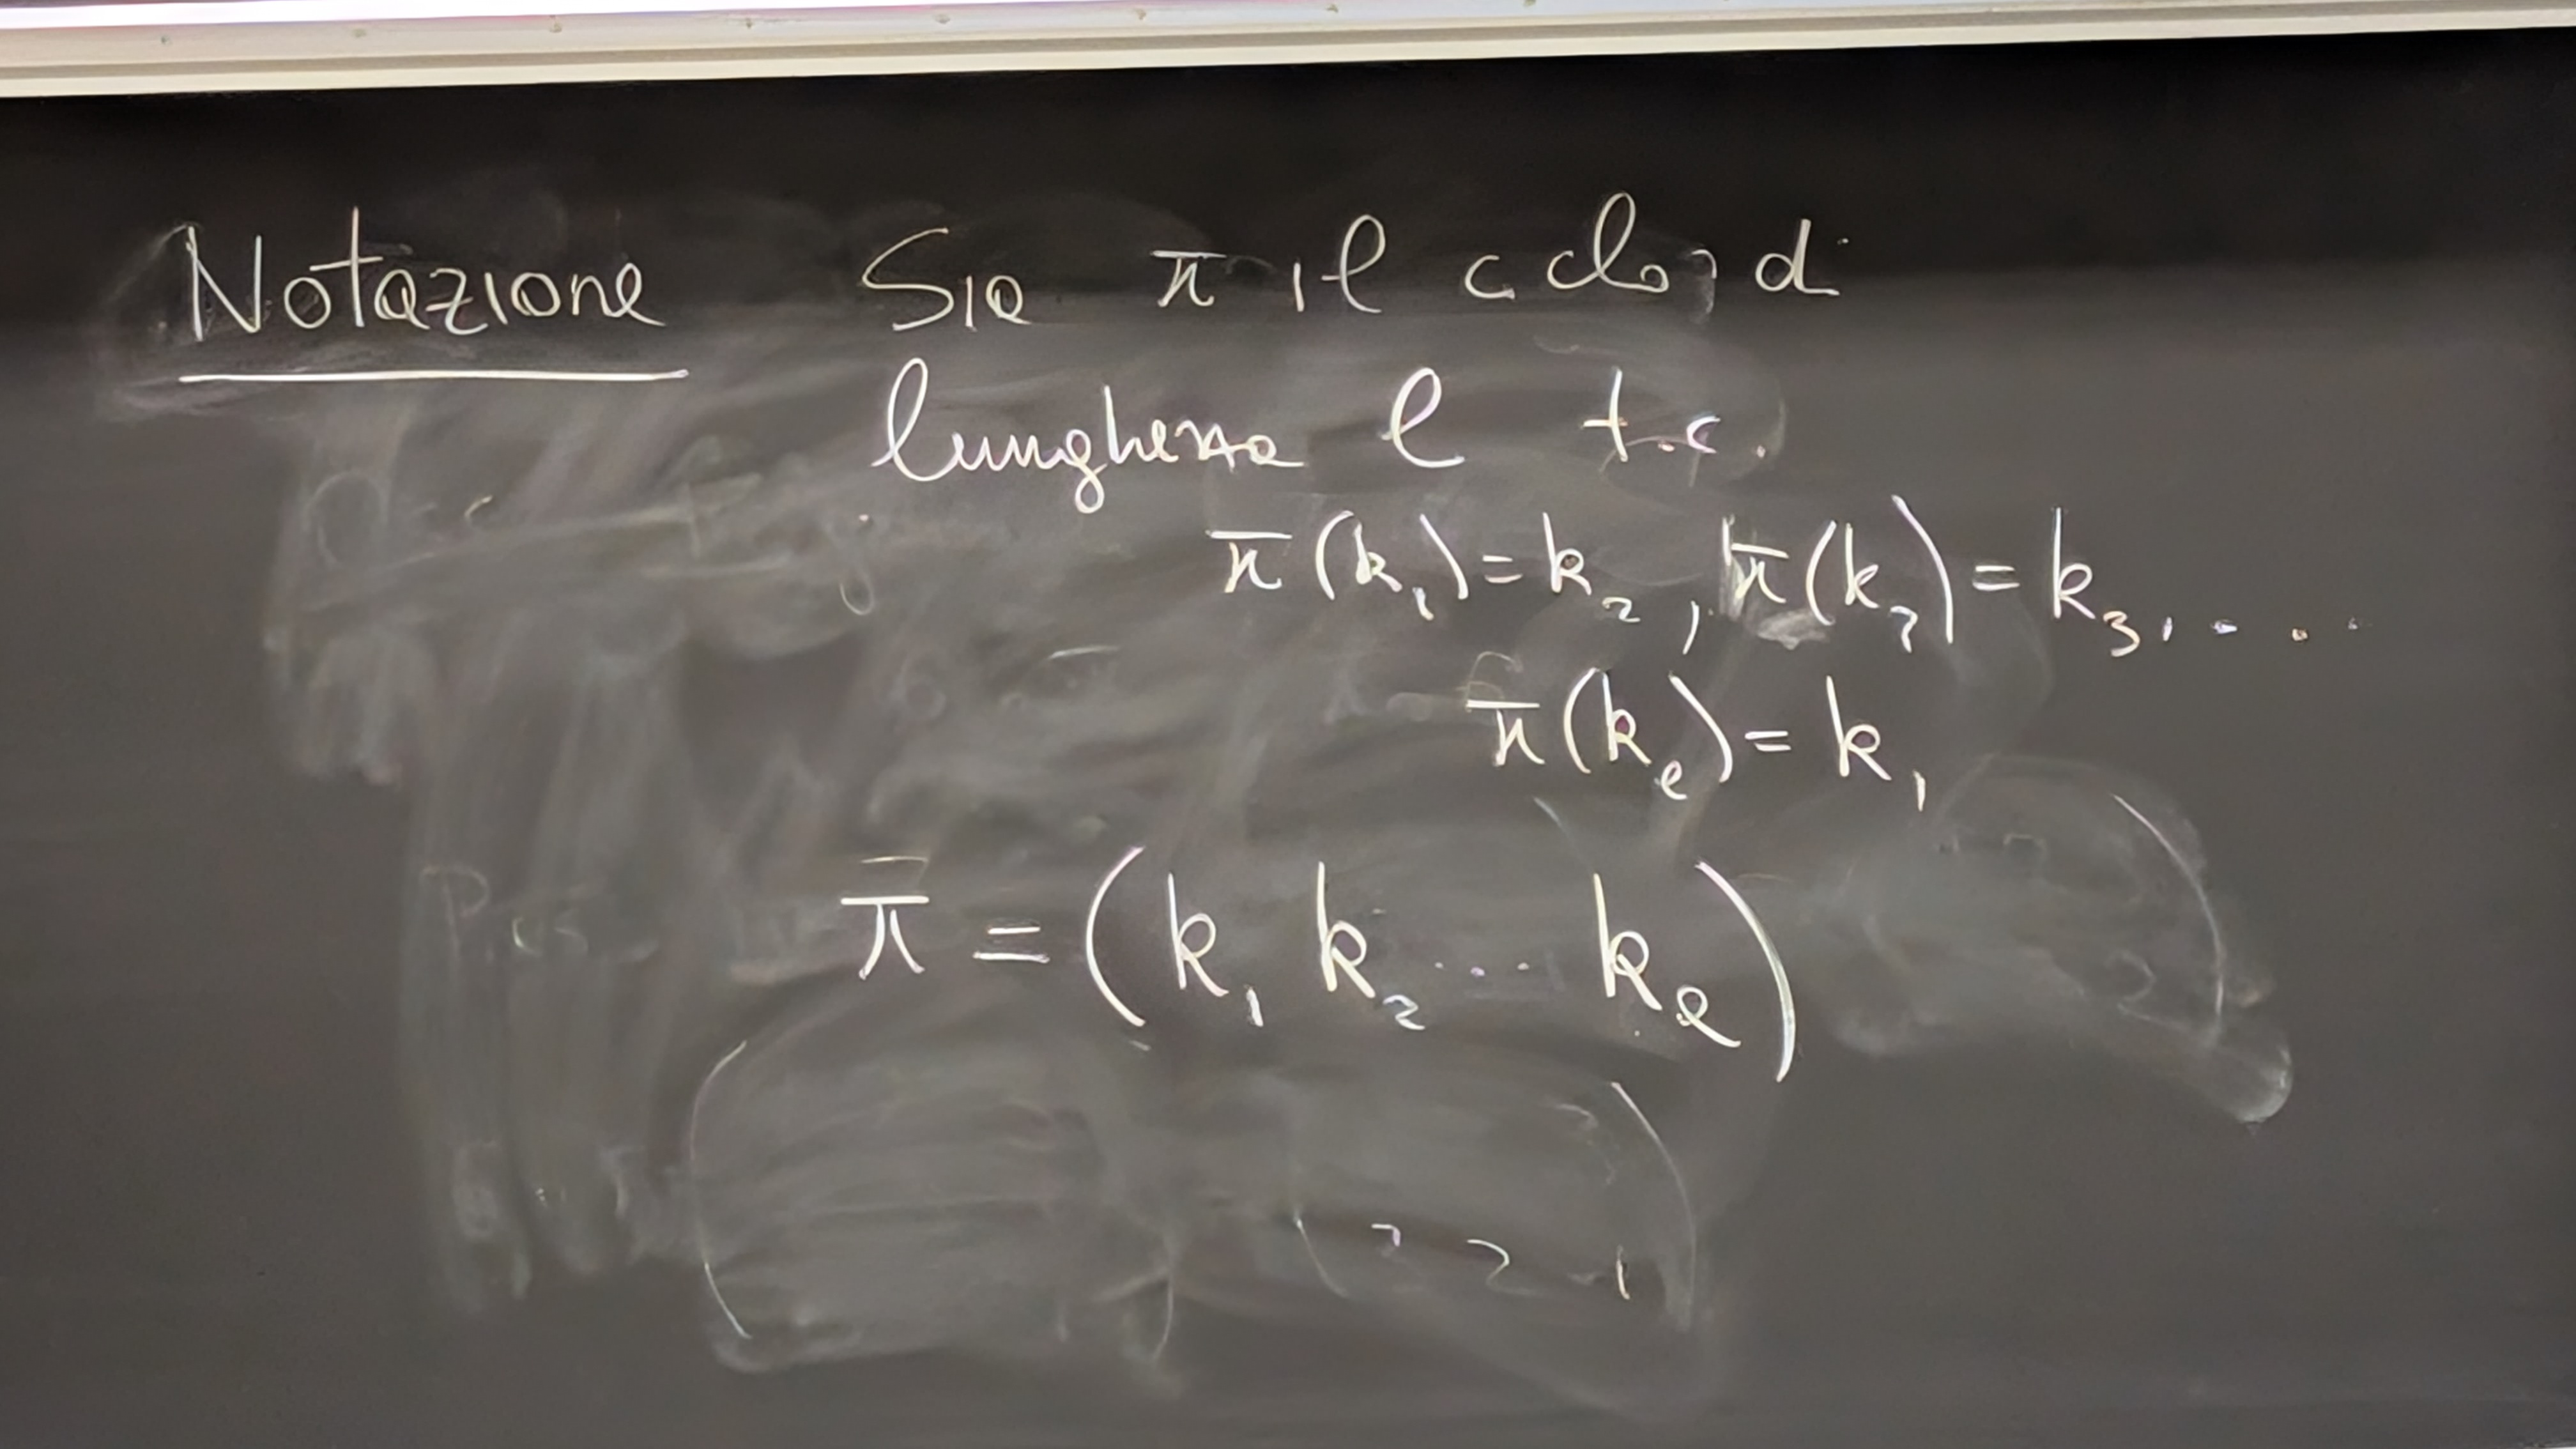 Notazione Sia π il ciclo di
lunghezza ℓ t.c.
π(k₁) = k₂, π(k₂) = k₃, ....
π(kₑ) = k₁
π = (k₁ k₂ ... kₑ)